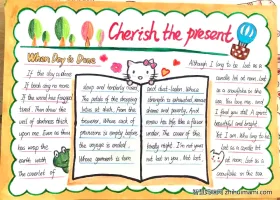 Cherish the present
When Day is Done
If the day is done,
If birds sing no more.
If the wind has flagged
tired. Then draw the
veil of darkness thick
upon me. Even as thou
has wrap the
earth with
the coverlet of
sleep and tenderly closed
The petals of the drooping
lotus at dusk. From the
traveler, Whose sack of
provisions is empty before
the voyage is ended.
Whose garment is torn
and dust-laden. Whose
strength is exhausted, remove
shame and poverty, And
renew his life like a flower
under The cover of thy
kindly night. I'm not
lost in you, Not lost,
Although I long to be lost as a
candle lit at noon, lost
as a snowflake in the
sea. You love me, and
I find you still A spirit
beautiful and bright,
Yet I am I, Who long to
be lost as a
candle lit at noon,
lost as a
snowflake in
zhihuimami.com